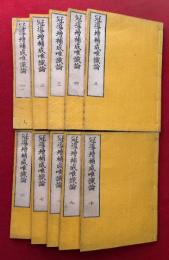 冠導増補成唯識論 一
冠導増補成唯識論 二
冠導増補成唯識論 三
冠導増補成唯識論 四
冠導増補成唯識論 五
冠導増補成唯識論
冠導増補成唯識論 七
冠導増補成唯識論
冠導増補成唯識論 九
冠導増補成唯識論 十